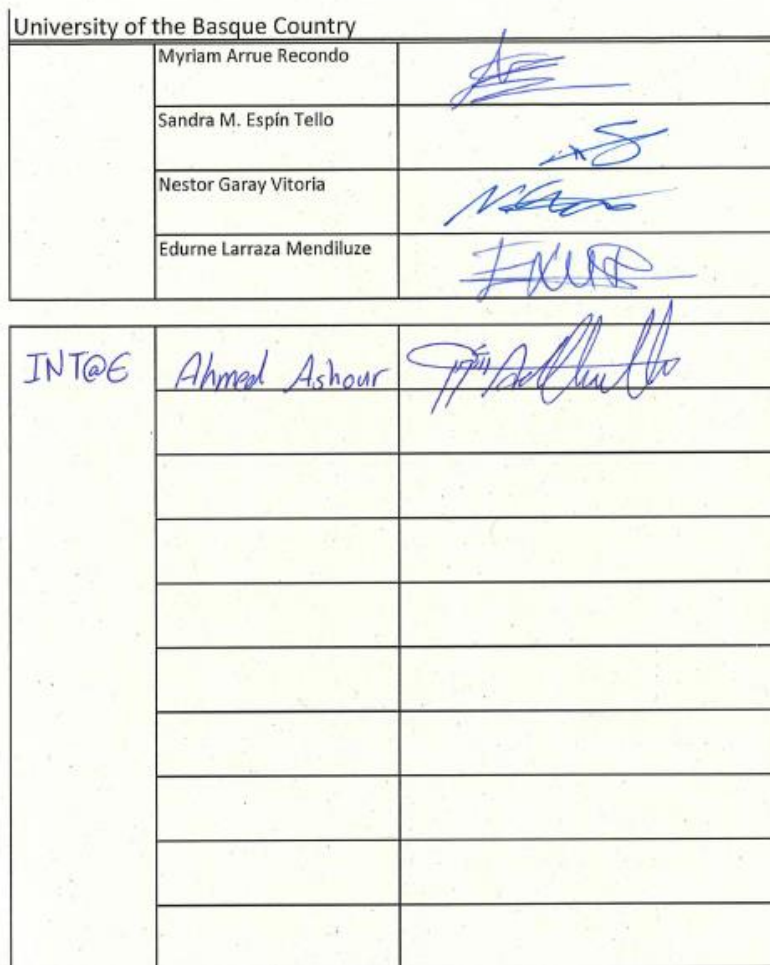 University of the Basque Country
Myriam Arrue Recondo
Sandra M. Espín Tello
Nestor Garay Vitoria
Edurne Larraza Mendiluze
INT@E Ahmed Ashour